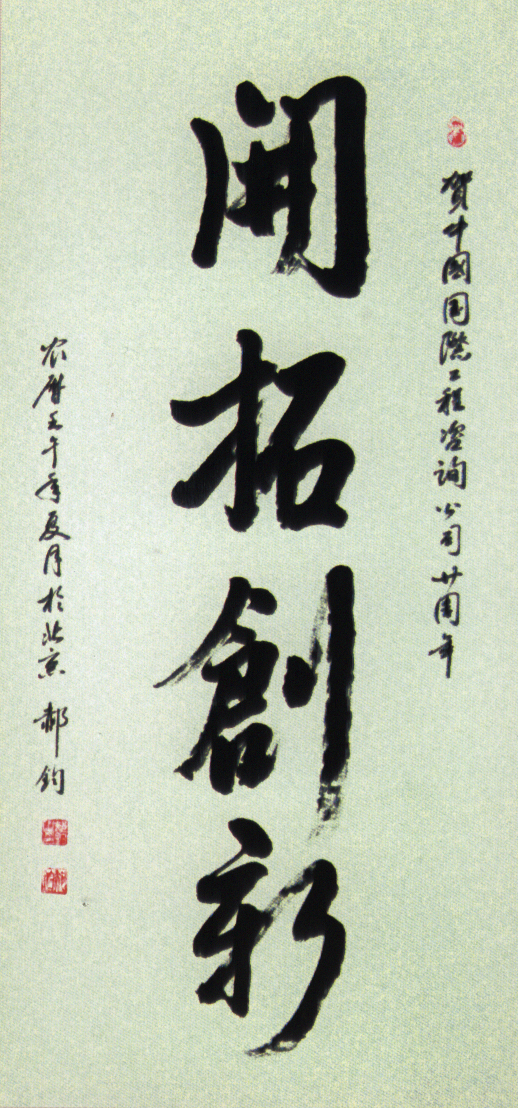 賀中國国際工程咨询公司廿周年
開拓創新
农曆壬午年夏月於北京 郝钧